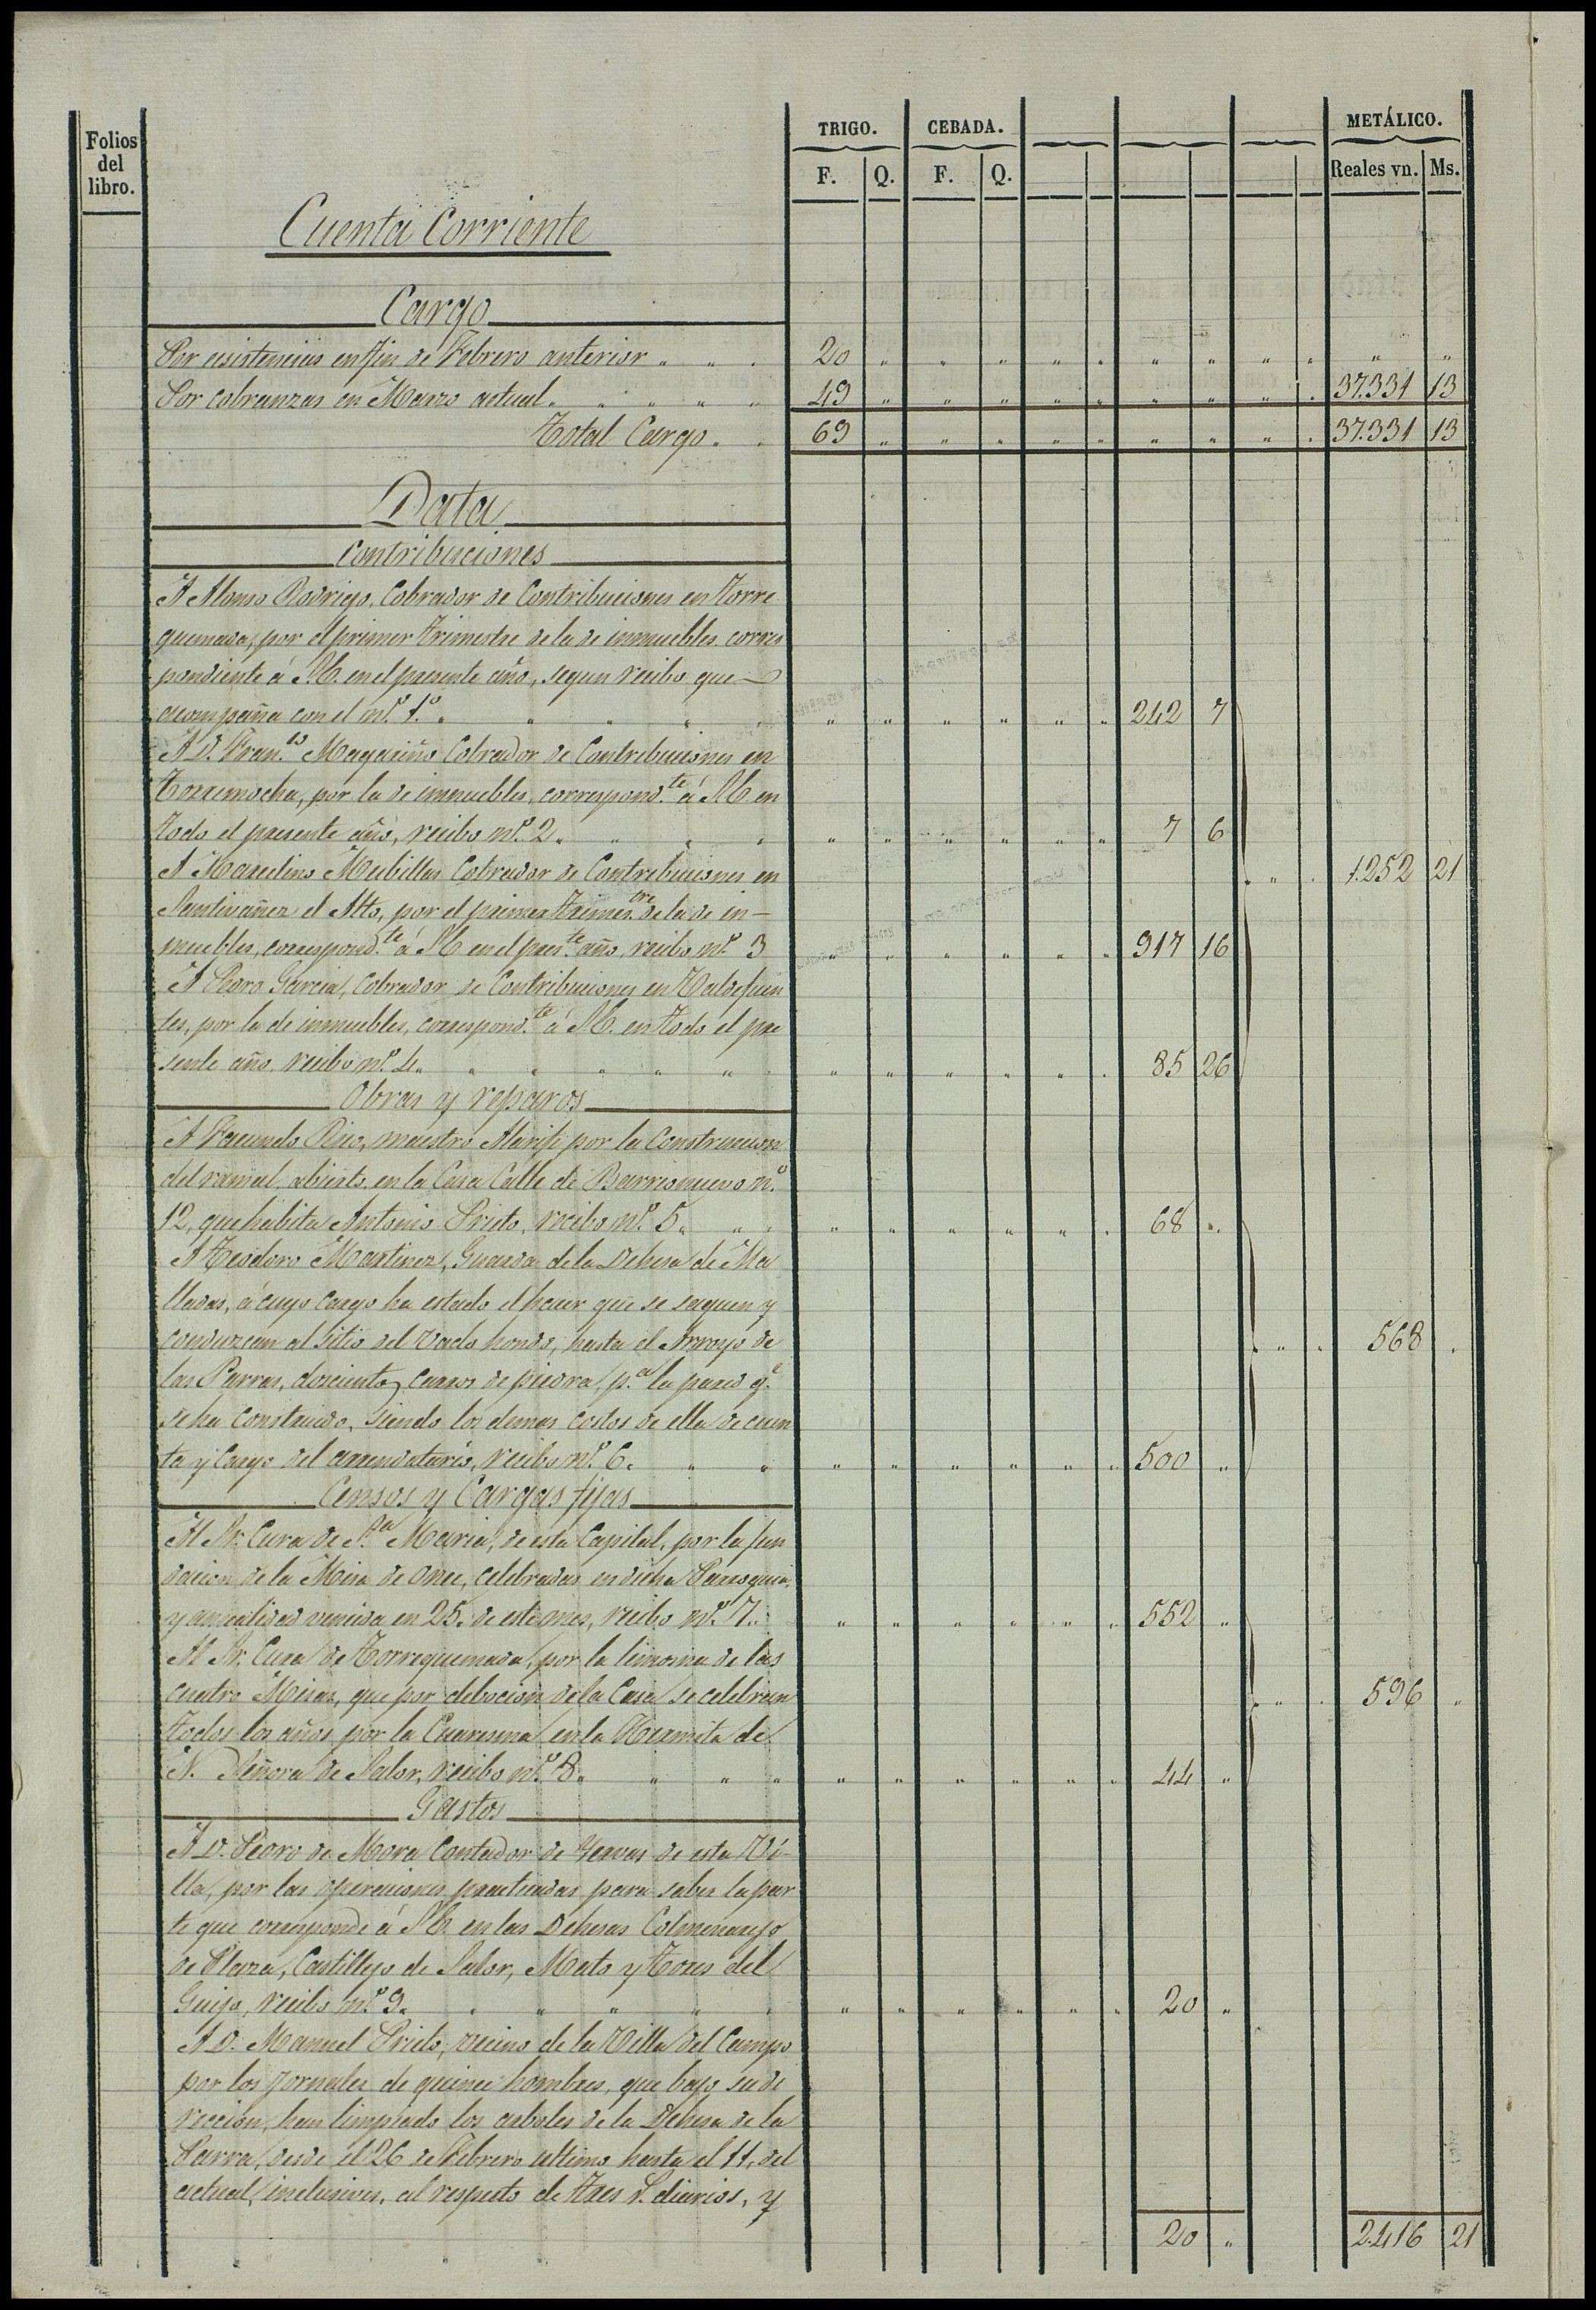 Folios del libro.
TRIGO. CEBADA. METÁLICO.
F. Q. F. Q. Reales vn. Ms.
Cuenta Corriente
Cargo
Por existencias en fin de Febrero anterior " " " 20 " " " " " " " " " " "
Por cobranzas en Marzo actual " " " " " 49 " " " " " " " " " 37.331 13
Total Cargo " " 69 " " " " " " " " " 37.331 13
Data
Contribuciones
A Alonso Rodrigo, Cobrador de Contribuciones en Torre
quemada, por el primer trimestre de la de inmuebles corres
pondiente á S.E. en el presente año, segun recibo que
acompaña con el nº 1º " " " " " " " " " " " 242 7
A D. Fran.co Magariño Cobrador de Contribuciones en
Torremocha, por la de inmuebles, correspond.te á S.E. en
todo el presente año, recibo nº 2 " " " " " " " " " " 7 6
A Marcelino Mubillas Cobrador de Contribuciones en " " " 1.252 21
Santivañez el Alto, por el primer trimes.tre de la de in-
muebles, correspond.te á S.E. en el pres.te año, recibo nº 3 " " " " " " 917 16
A Pedro Garcia, Cobrador de Contribuciones en Valdefuen
tes, por la de inmuebles, correspond.te á S.E. en todo el pre
sente año, recibo nº 4 " " " " " " " " " " " " 85 26
Obras y reparos
A Facundo Rino, maestro Alarife por la Construccion
del ramal abierto en la Casa Calle de Barrionuevo nº
12, que habita Antonio Prieto, recibo nº 5 " " " " " " " " " 68 "
A Teodoro Martinez, Guarda de la Dehesa de Ma
lladas, á cuyo cargo ha estado el hacer que se saquen y
conduzcan al sitio del Vado hondo, hasta el Arroyo de " " " 568 "
las Parras, doscientos carros de piedra, p.a la pared q.e
se ha construido, siendo los demas costos de ella de cuen
ta y cargo del arrendatario, recibo nº 6 " " " " " " " " " 500 "
Censos y Cargas fijas
Al Sr. Cura de S.ta Maria, de esta Capital, por la fun
dacion de la Misa de once, celebradas en dicha Parroquia,
y anualidad vencida en 25 de este mes, recibo nº 7 " " " " " " " 552 "
Al Sr. Cura de Torrequemada, por la limosna de las
cuatro Misas, que por debocion de la Casa se celebran " " " 596 "
todos los años por la Cuaresma en la Hermita de
N. Señora de Salor, recibo nº 8 " " " " " " " " " " 44 "
Gastos
A D. Pedro de Mora Contador de Yervas de esta Vi-
lla, por las operaciones practicadas para saber la par
te que corresponde á S.E. en las Dehesas Colmenarejo
de Plaza, Castillejo de Salor, Mato y Torres del
Guijo, recibo nº 9 " " " " " " " " " " " " 20 "
A D. Manuel Prieto, vecino de la Villa del Campo
por los jornales de quince hombres, que bajo su di
reccion, han limpiado los arboles de la Dehesa de la
Parra, desde el 26 de Febrero ultimo hasta el 11 del
actual, inclusives, al respeto de tres r.s diarios, y
20 " 2.416 21